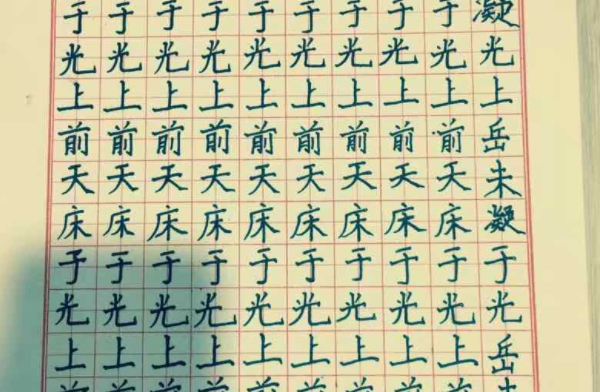 于于于于于于于于于凝
光光光光光光光光光光
上上上上上上上上上上
前前前前前前前前前岳
天天天天天天天天天未
床床床床床床床床床凝
予于于于于于于于于于
光光光光光光光光光光
上上上上上上上上上岳